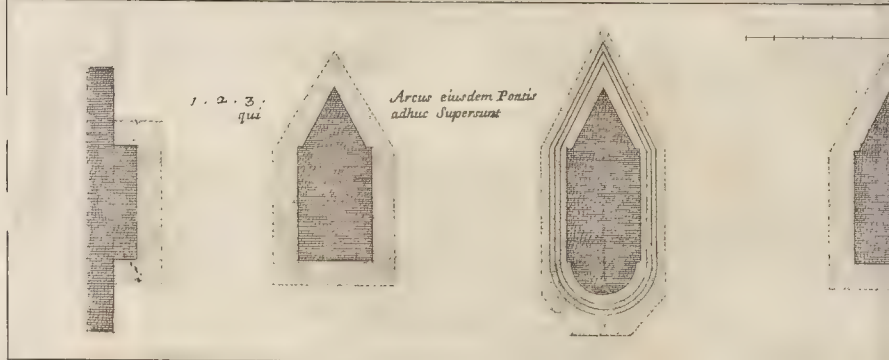 1 . 2 . 3 . Arcus eiusdem Pontis
qui adhuc Supersunt